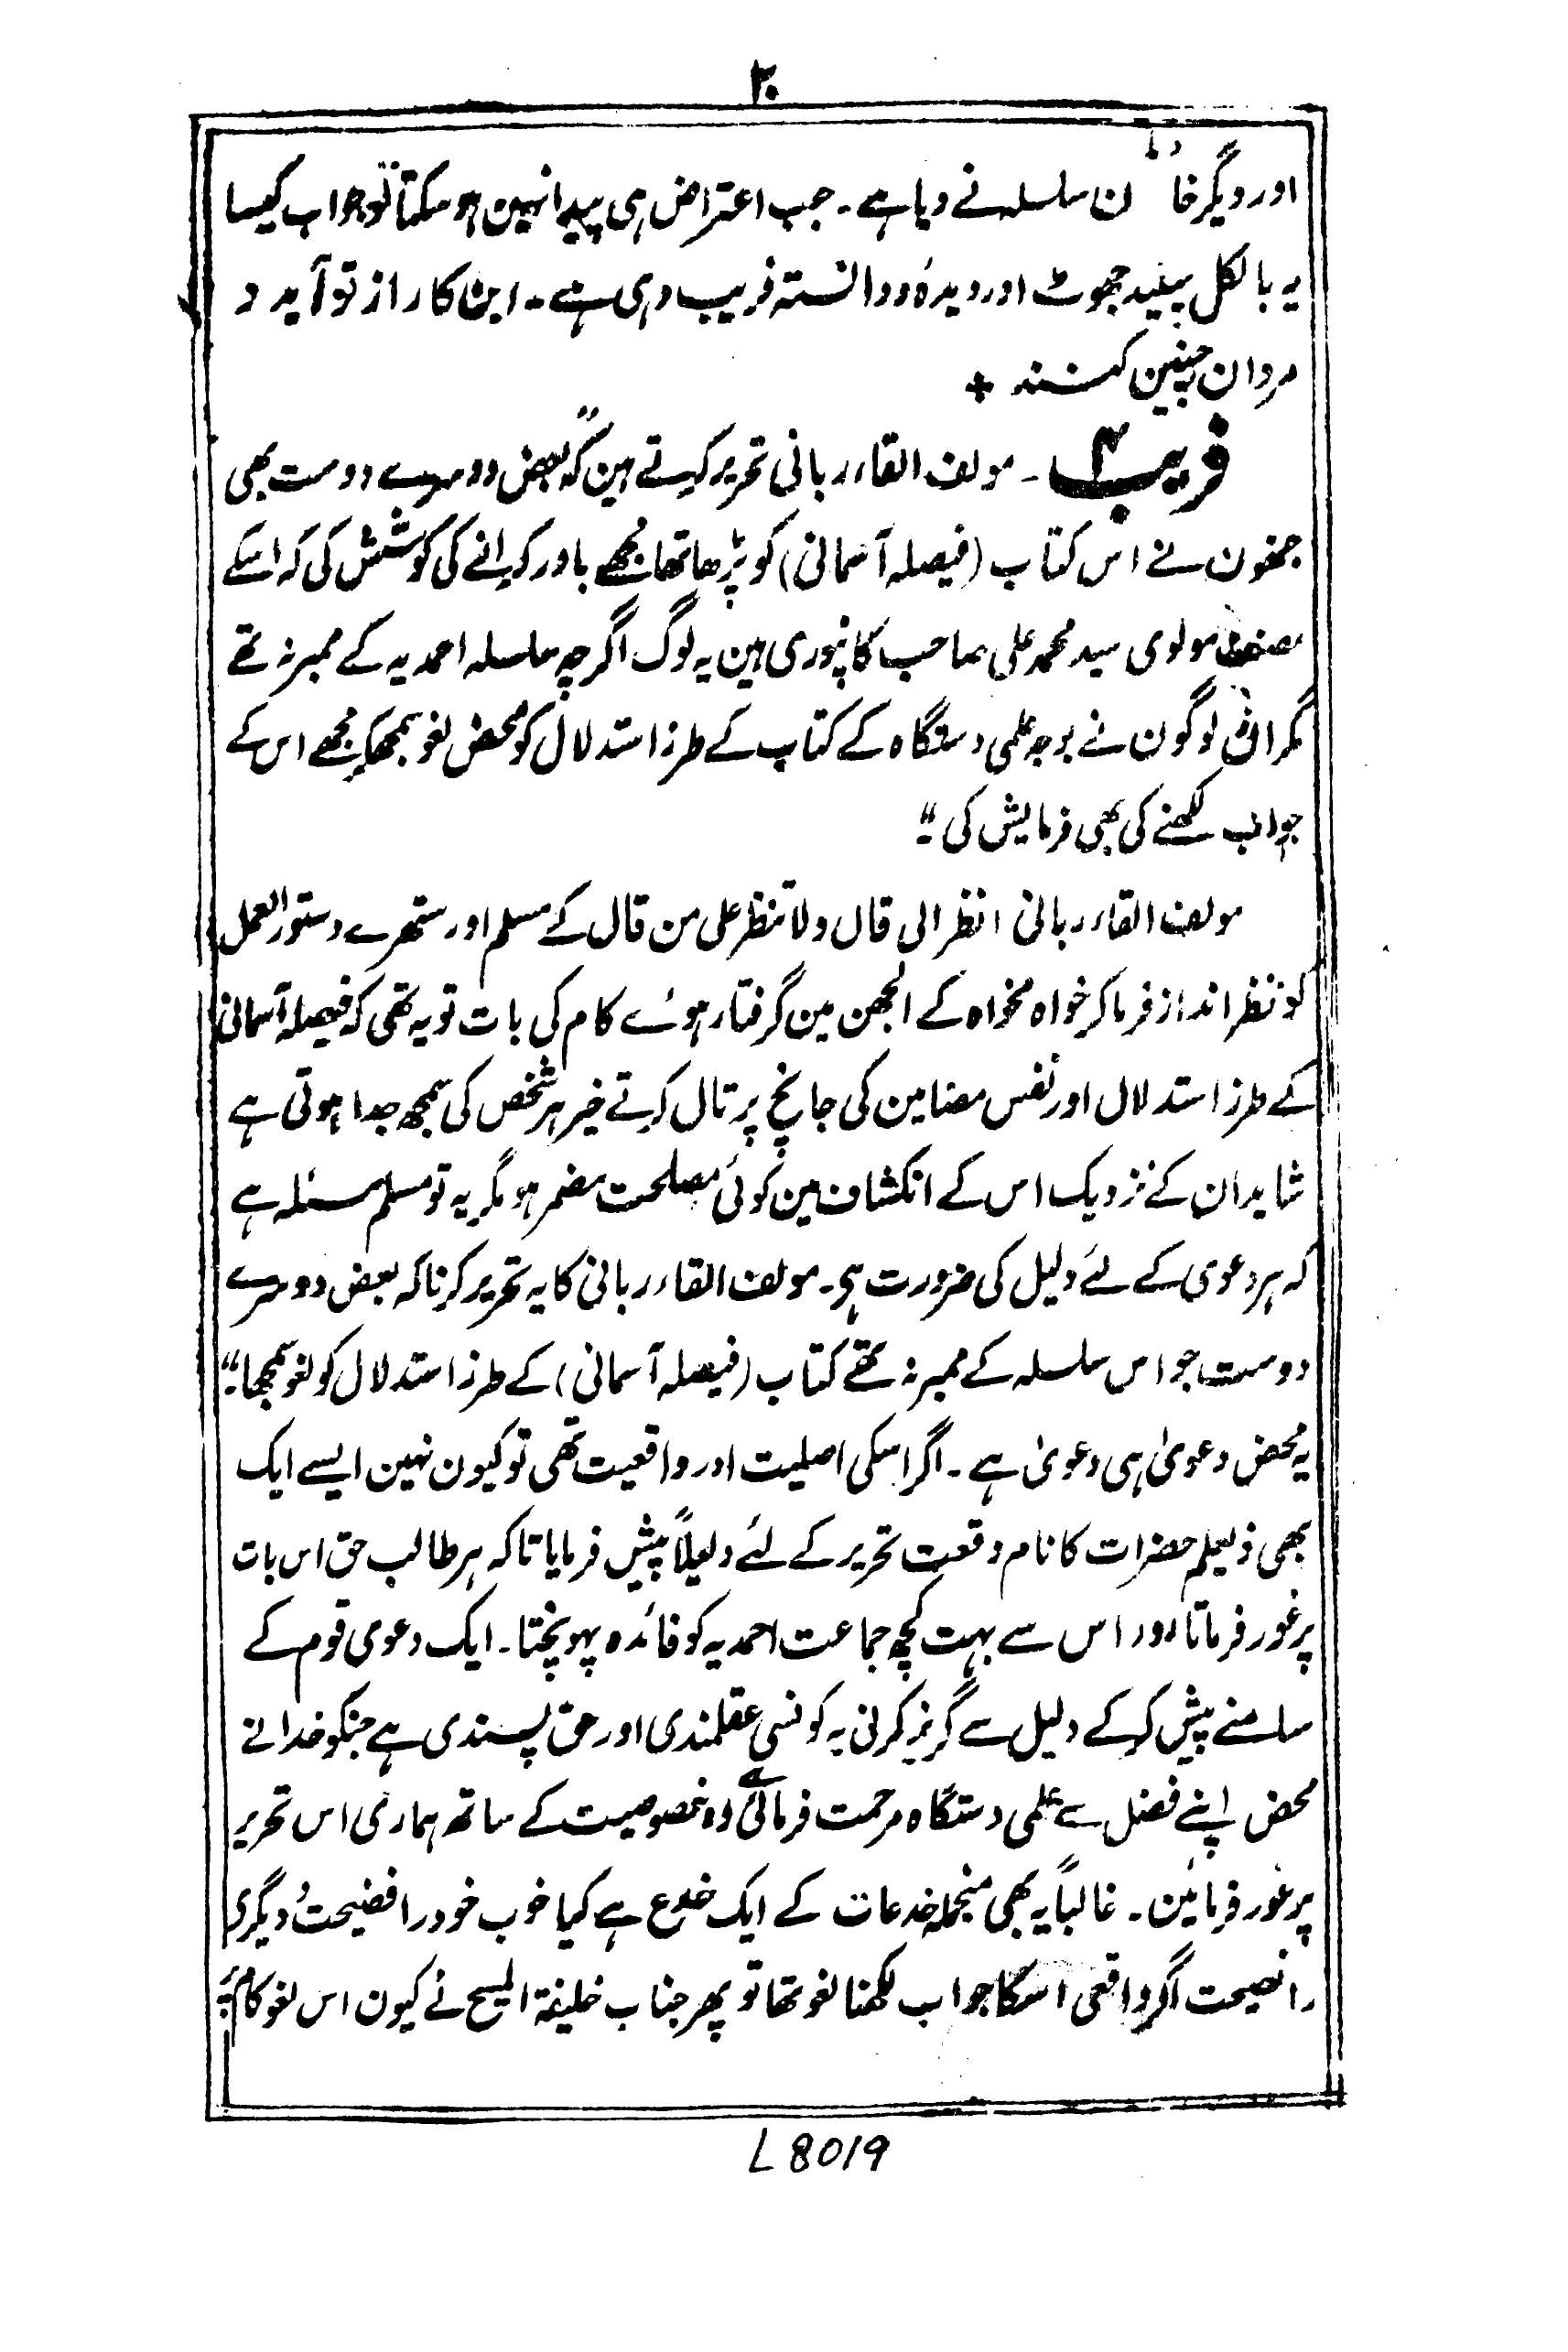 ۲۰
اور دیگر ن سلسلہ نے دیا ہے ۔ جب اعتراض ہی پیدا نہین ہو سکتا تو جواب کیسا
یہ بالکل سپید جھوٹ اور دیدہ و دانستہ فریب دہی ہے ۔ این کار از تو آید و
مردان چنین کنند +
فریب ۔ مولف القاء ربانی تحریر کرتے ہین کہ "بعض دوسرے دوست بھی
جنھون نے اس کتاب (فیصلہ آسمانی) کو پڑھا تھا مجھے باور کرانے کی کوشش کی کہ اسکے
مصنف مولوی سید محمد علی صاحب کانپوری ہین یہ لوگ اگرچہ سلسلہ احمدیہ کے ممبر نہ تھے
مگر ان لوگون نے بوجہ علمی دستگاہ کے کتاب کے طرز استدلال کو محض لغو سمجھکر مجھے اس کے
جواب لکھنے کی بھی فرمایش کی"
مولف القاء ربانی انظر الی قال ولا تنظر علی من قال کے مسلم اور ستھرے دستور العمل
کو نظر انداز فرما کر خواہ مخواہ کے الجھن مین گرفتار ہوئے کام کی بات تو یہ تھی کہ فیصلہ آسمانی
کے طرز استدلال اور نفس مضامین کی جانچ پرتال کرتے خیر ہر شخص کی سمجھ جدا ہوتی ہے
شاید ان کے نزدیک اس کے انکشاف مین کوئی مصلحت مضمر ہو مگر یہ تو مسلم مسئلہ ہے
کہ ہر دعوی کے لئے دلیل کی ضرورت ہی ۔ مولف القاء ربانی کا یہ تحریر کرنا کہ بعض دوسرے
دوست جو اس سلسلہ کے ممبر نہ تھے کتاب (فیصلہ آسمانی) کے طرز استدلال کو لغو سمجھا"
یہ محض دعویٰ ہی دعویٰ ہے ۔ اگر اسکی اصلیت اور واقعیت تھی تو کیون نہین ایسے ایک
بھی ذیعلم حضرات کا نام وقعت تحریر کے لئے دلیلاً پیش فرمایا تاکہ ہر طالب حق اس بات
پر غور فرماتا اور اس سے بہت کچھ جماعت احمدیہ کو فائدہ پہونچتا ۔ ایک دعوی قوم کے
سامنے پیش کر کے دلیل سے گریز کرنی یہ کونسی عقلمندی اور حق پسندی ہے جنکو خدا نے
محض اپنے فضل سے علمی دستگاہ مرحمت فرمائی ہے وہ خصوصیت کے ساتھ ہماری اس تحریر
پر غور فرمائین ۔ غالباً یہ بھی منجملہ خدعات کے ایک خدع ہے کیا خوب خود را فضیحت دیگری
را نصیحت اگر واقعی اسکا جواب لکھنا لغو تھا تو پھر جناب خلیفۃ المسیح نے کیون اس لغو کام
L 8019